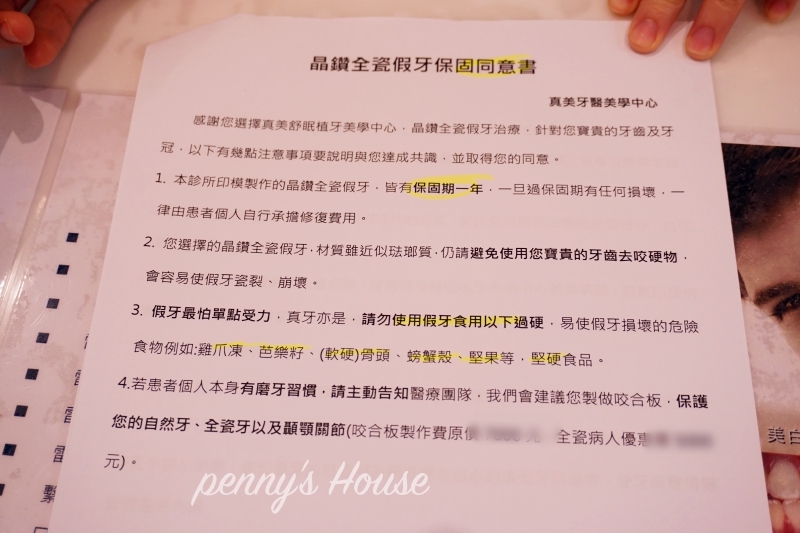 晶鑽全瓷假牙保固同意書
真美牙醫美學中心
感謝您選擇真美舒眠植牙美學中心，晶鑽全瓷假牙治療，針對您寶貴的牙齒及牙
冠，以下有幾點注意事項要說明與您達成共識，並取得您的同意。
1. 本診所印模製作的晶鑽全瓷假牙，皆有保固期一年，一旦過保固期有任何損壞，一
律由患者個人自行承擔修復費用。
2. 您選擇的晶鑽全瓷假牙，材質雖近似琺瑯質，仍請避免使用您寶貴的牙齒去咬硬物，
會容易使假牙瓷裂、崩壞。
3. 假牙最怕單點受力，真牙亦是，請勿使用假牙食用以下過硬，易使假牙損壞的危險
食物例如:雞爪凍、芭樂籽、(軟硬)骨頭、螃蟹殼、堅果等，堅硬食品。
4.若患者個人本身有磨牙習慣，請主動告知醫療團隊，我們會建議您製做咬合板，保護
您的自然牙、全瓷牙以及顳顎關節(咬合板製作費原價 元 全瓷病人優惠
元)。
penny's House
美白